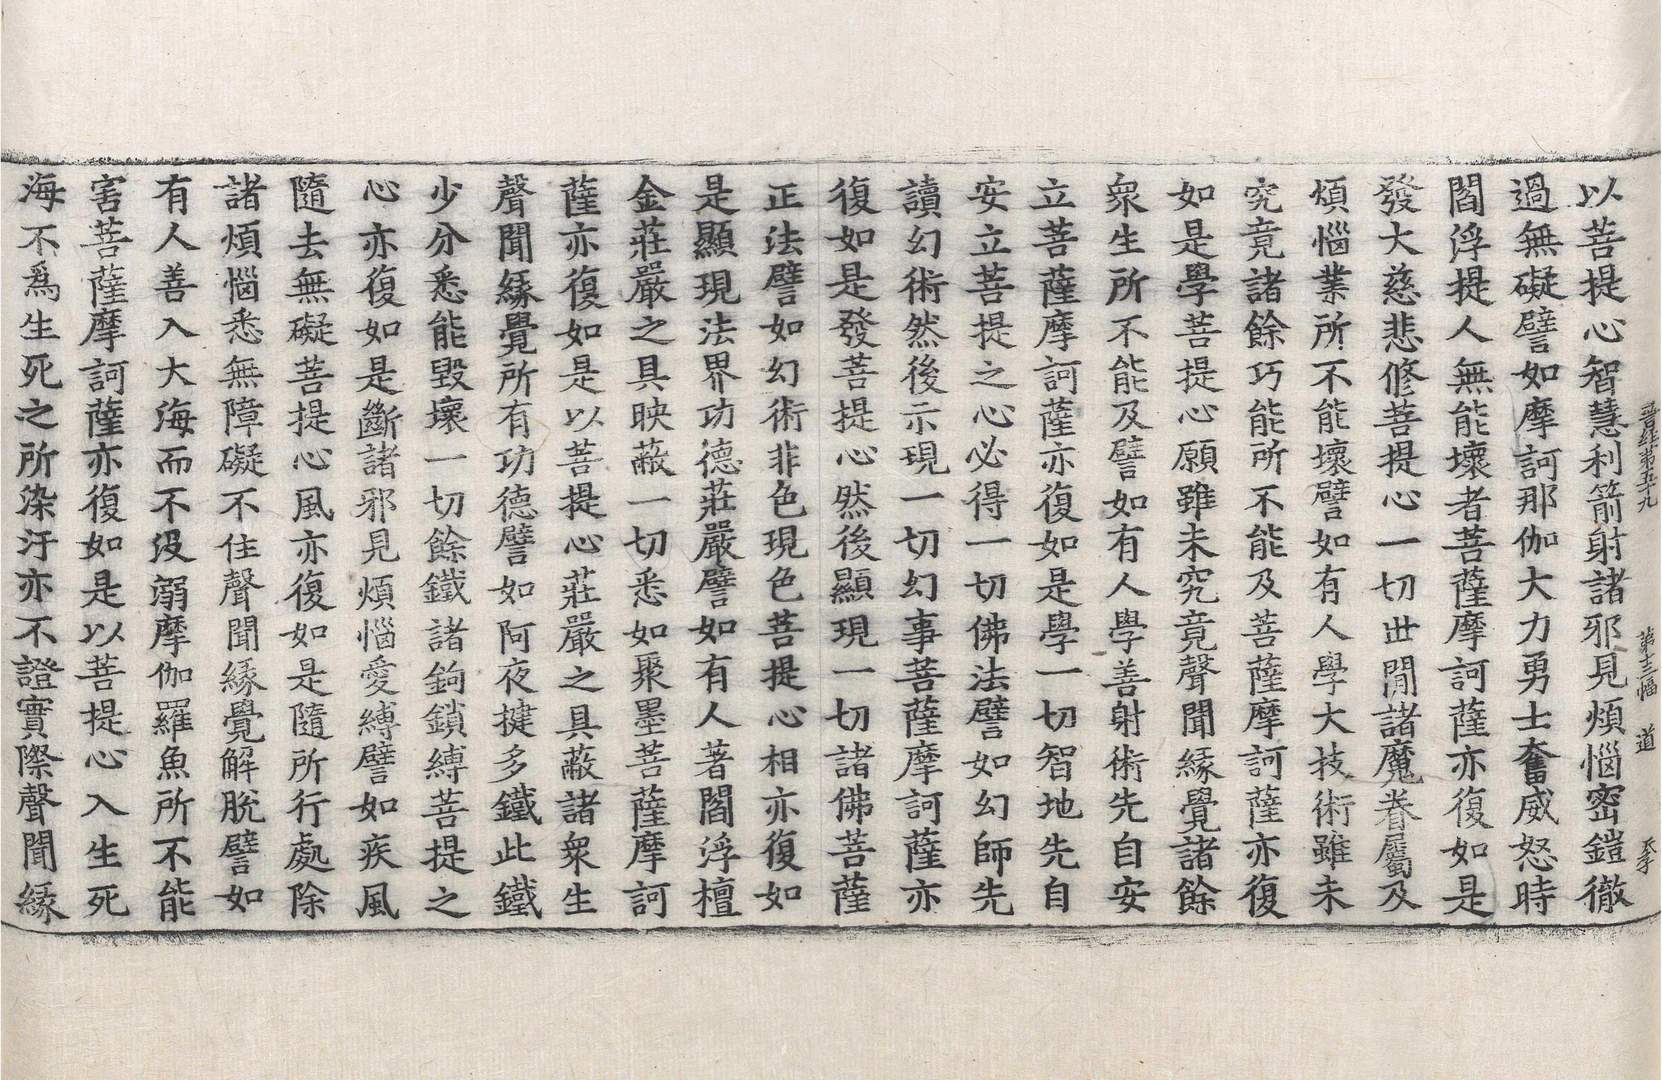 晉經第五十九 第十三幅 道
以菩提心智慧利箭射諸邪見煩惱密鎧徹
過無礙譬如摩訶那伽大力勇士奮威怒時
閻浮提人無能壞者菩薩摩訶薩亦復如是
發大慈悲修菩提心一切世閒諸魔眷屬及
煩惱業所不能壞譬如有人學大技術雖未
究竟諸餘巧能所不能及菩薩摩訶薩亦復
如是學菩提心願雖未究竟聲聞緣覺諸餘
衆生所不能及譬如有人學善射術先自安
立菩薩摩訶薩亦復如是學一切智地先自
安立菩提之心必得一切佛法譬如幻師先
讀幻術然後示現一切幻事菩薩摩訶薩亦
復如是發菩提心然後顯現一切諸佛菩薩
正法譬如幻術非色現色菩提心相亦復如
是顯現法界功德莊嚴譬如有人著閻浮檀
金莊嚴之具映蔽一切悉如聚墨菩薩摩訶
薩亦復如是以菩提心莊嚴之具蔽諸衆生
聲聞緣覺所有功德譬如阿夜揵多鐵此鐵
少分悉能毀壞一切餘鐵諸鉤鎖縛菩提之
心亦復如是斷諸邪見煩惱愛縛譬如疾風
隨去無礙菩提心風亦復如是隨所行處除
諸煩惱悉無障礙不住聲聞緣覺解脫譬如
有人善入大海而不沒溺摩伽羅魚所不能
害菩薩摩訶薩亦復如是以菩提心入生死
海不爲生死之所染汙亦不證實際聲聞緣